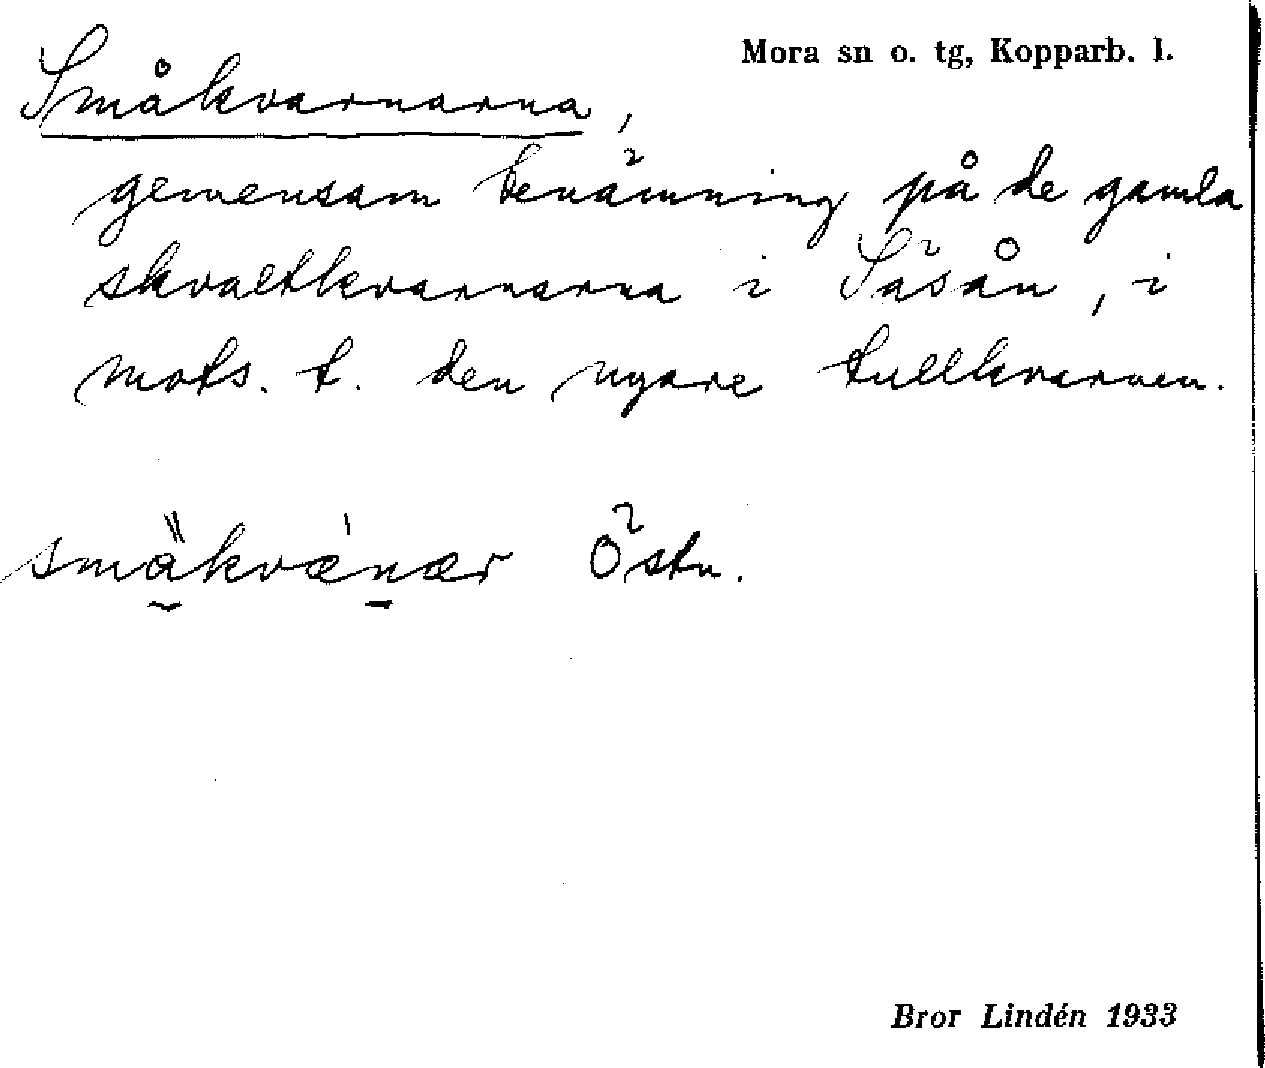 Mora sn o. tg, Kopparb. l.
Småkvarnarna,
gemensam benämning på de gamla
skvaltkvarnarna i Säsån, i
mots. t. den nyare tullkvarnen.
smäkvænær Östn.
Bror Lindén 1933